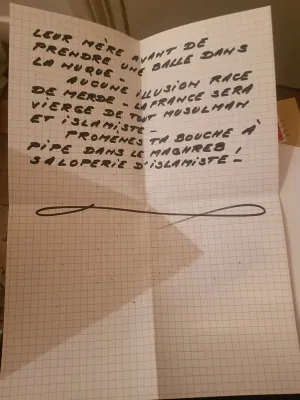 LEUR MÈRE AVANT DE
PRENDRE UNE BALLE DANS
LA NUQUE -
AUCUNE ILLUSION RACE
DE MERDE - LA FRANCE SERA
VIERGE DE TOUT MUSULMAN
ET ISLAMISTE -
PROMENES TA BOUCHE À
PIPE DANS LE MAGHREB
SALOPERIE D'ISLAMISTE !